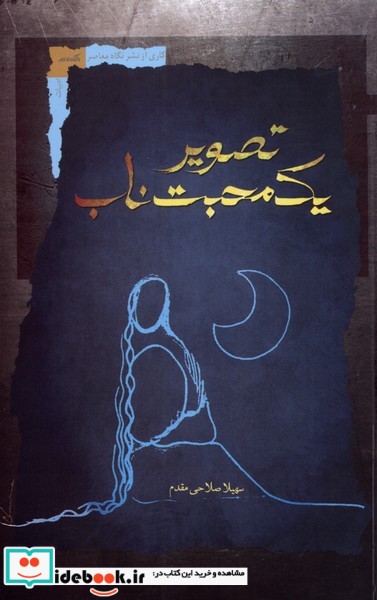 کاری از نشر نگاه معاصر
تصویر
یک محبت ناب
سهیلا صلاحی مقدم
مشاهده و خرید این کتاب در:
idebook.ir